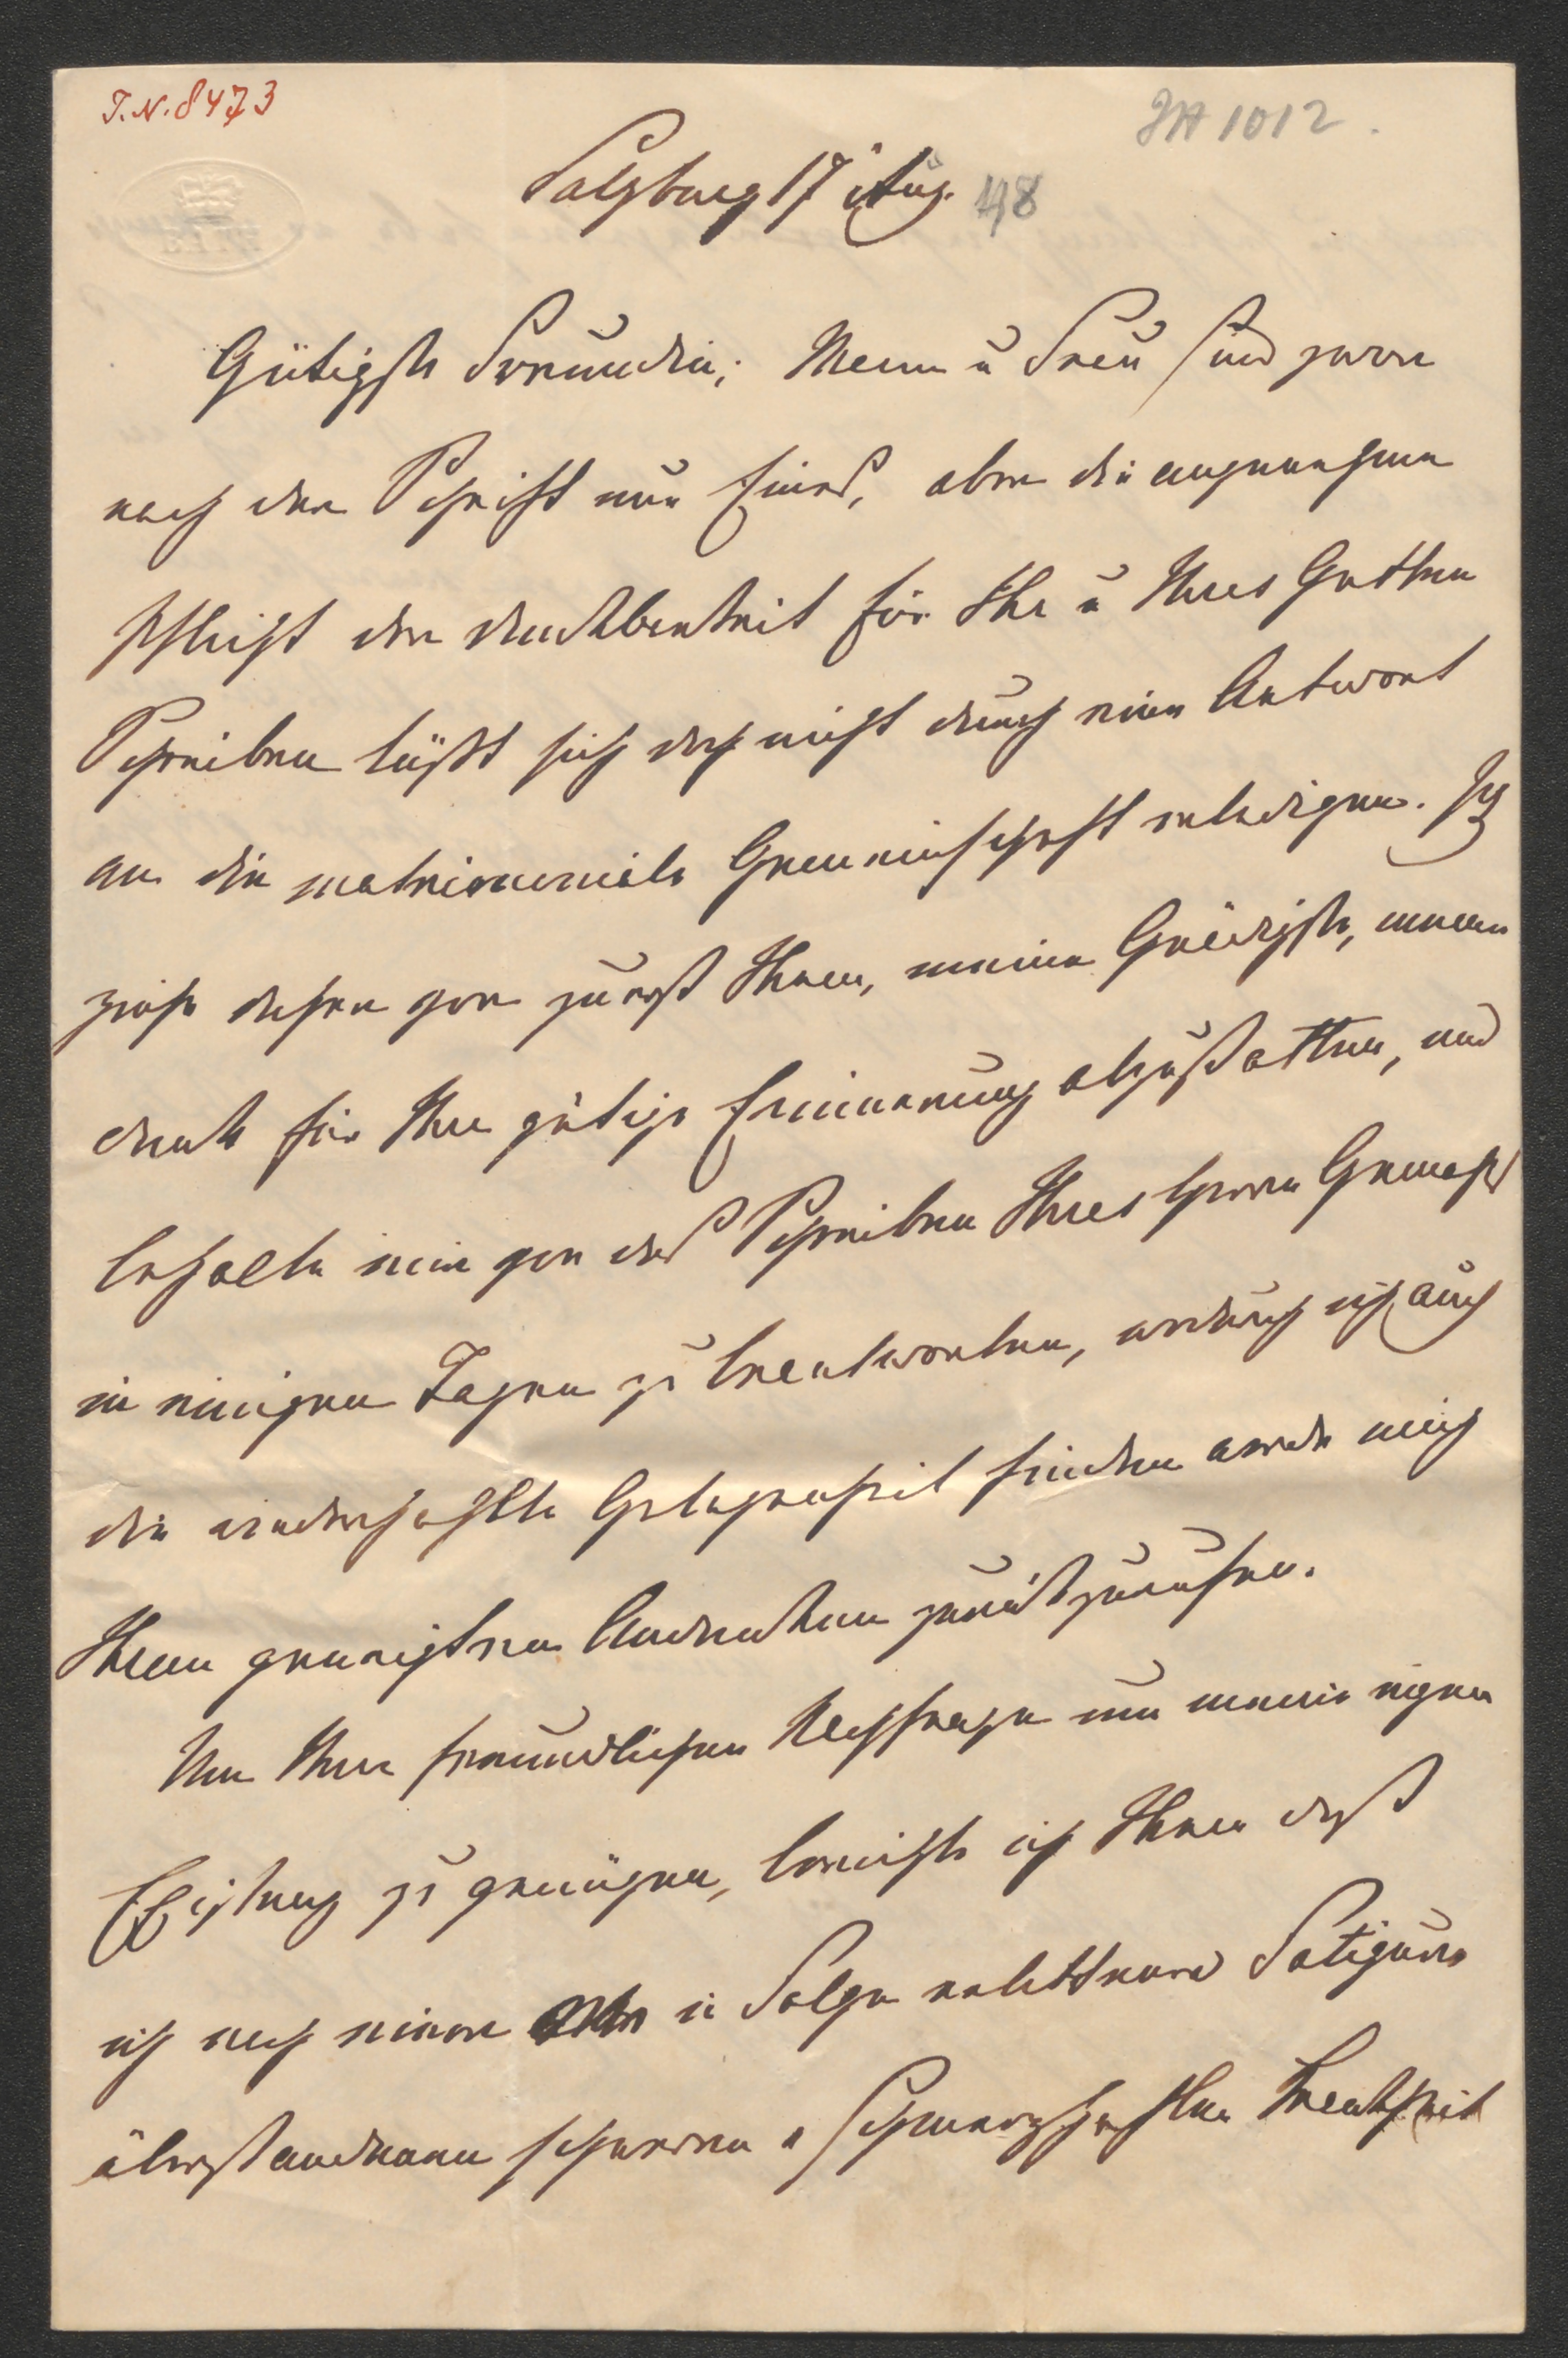 I.N. 8473
JA 1012.
Salzburg 17 Aug. 48
Gütigste Freundin; Mann u Frau sind zwar
nach der Schrift nur Eines, aber die angenehme
Pflicht der Dankbarkeit für Ihr u Ihres Gatten
Schreiben läßt sich doch nicht durch eine Antwort
an die matrimoniale Gemeinschaft erledigen. Ich
ziehe daher vor zuerst Ihnen, meine Gnädigste, meinen
Dank für Ihre gütige Erinnerung abzustatten, und
behalte mir vor das Schreiben Ihres Herrn Gemahls
in einigen Tagen zu beantworten, wodurch ich auch
die Gelegenheit finden werde mich
Ihrem geneigten Andenken zurückzurufen.
Um Ihrer freundlichen Nachfrage um meine eigene
Existenz zu genügen, berichte ich Ihnen daß
ich nach einer in Folge erlittener Fatiguen
überstandenen schweren u schmerzhaften Krankheit